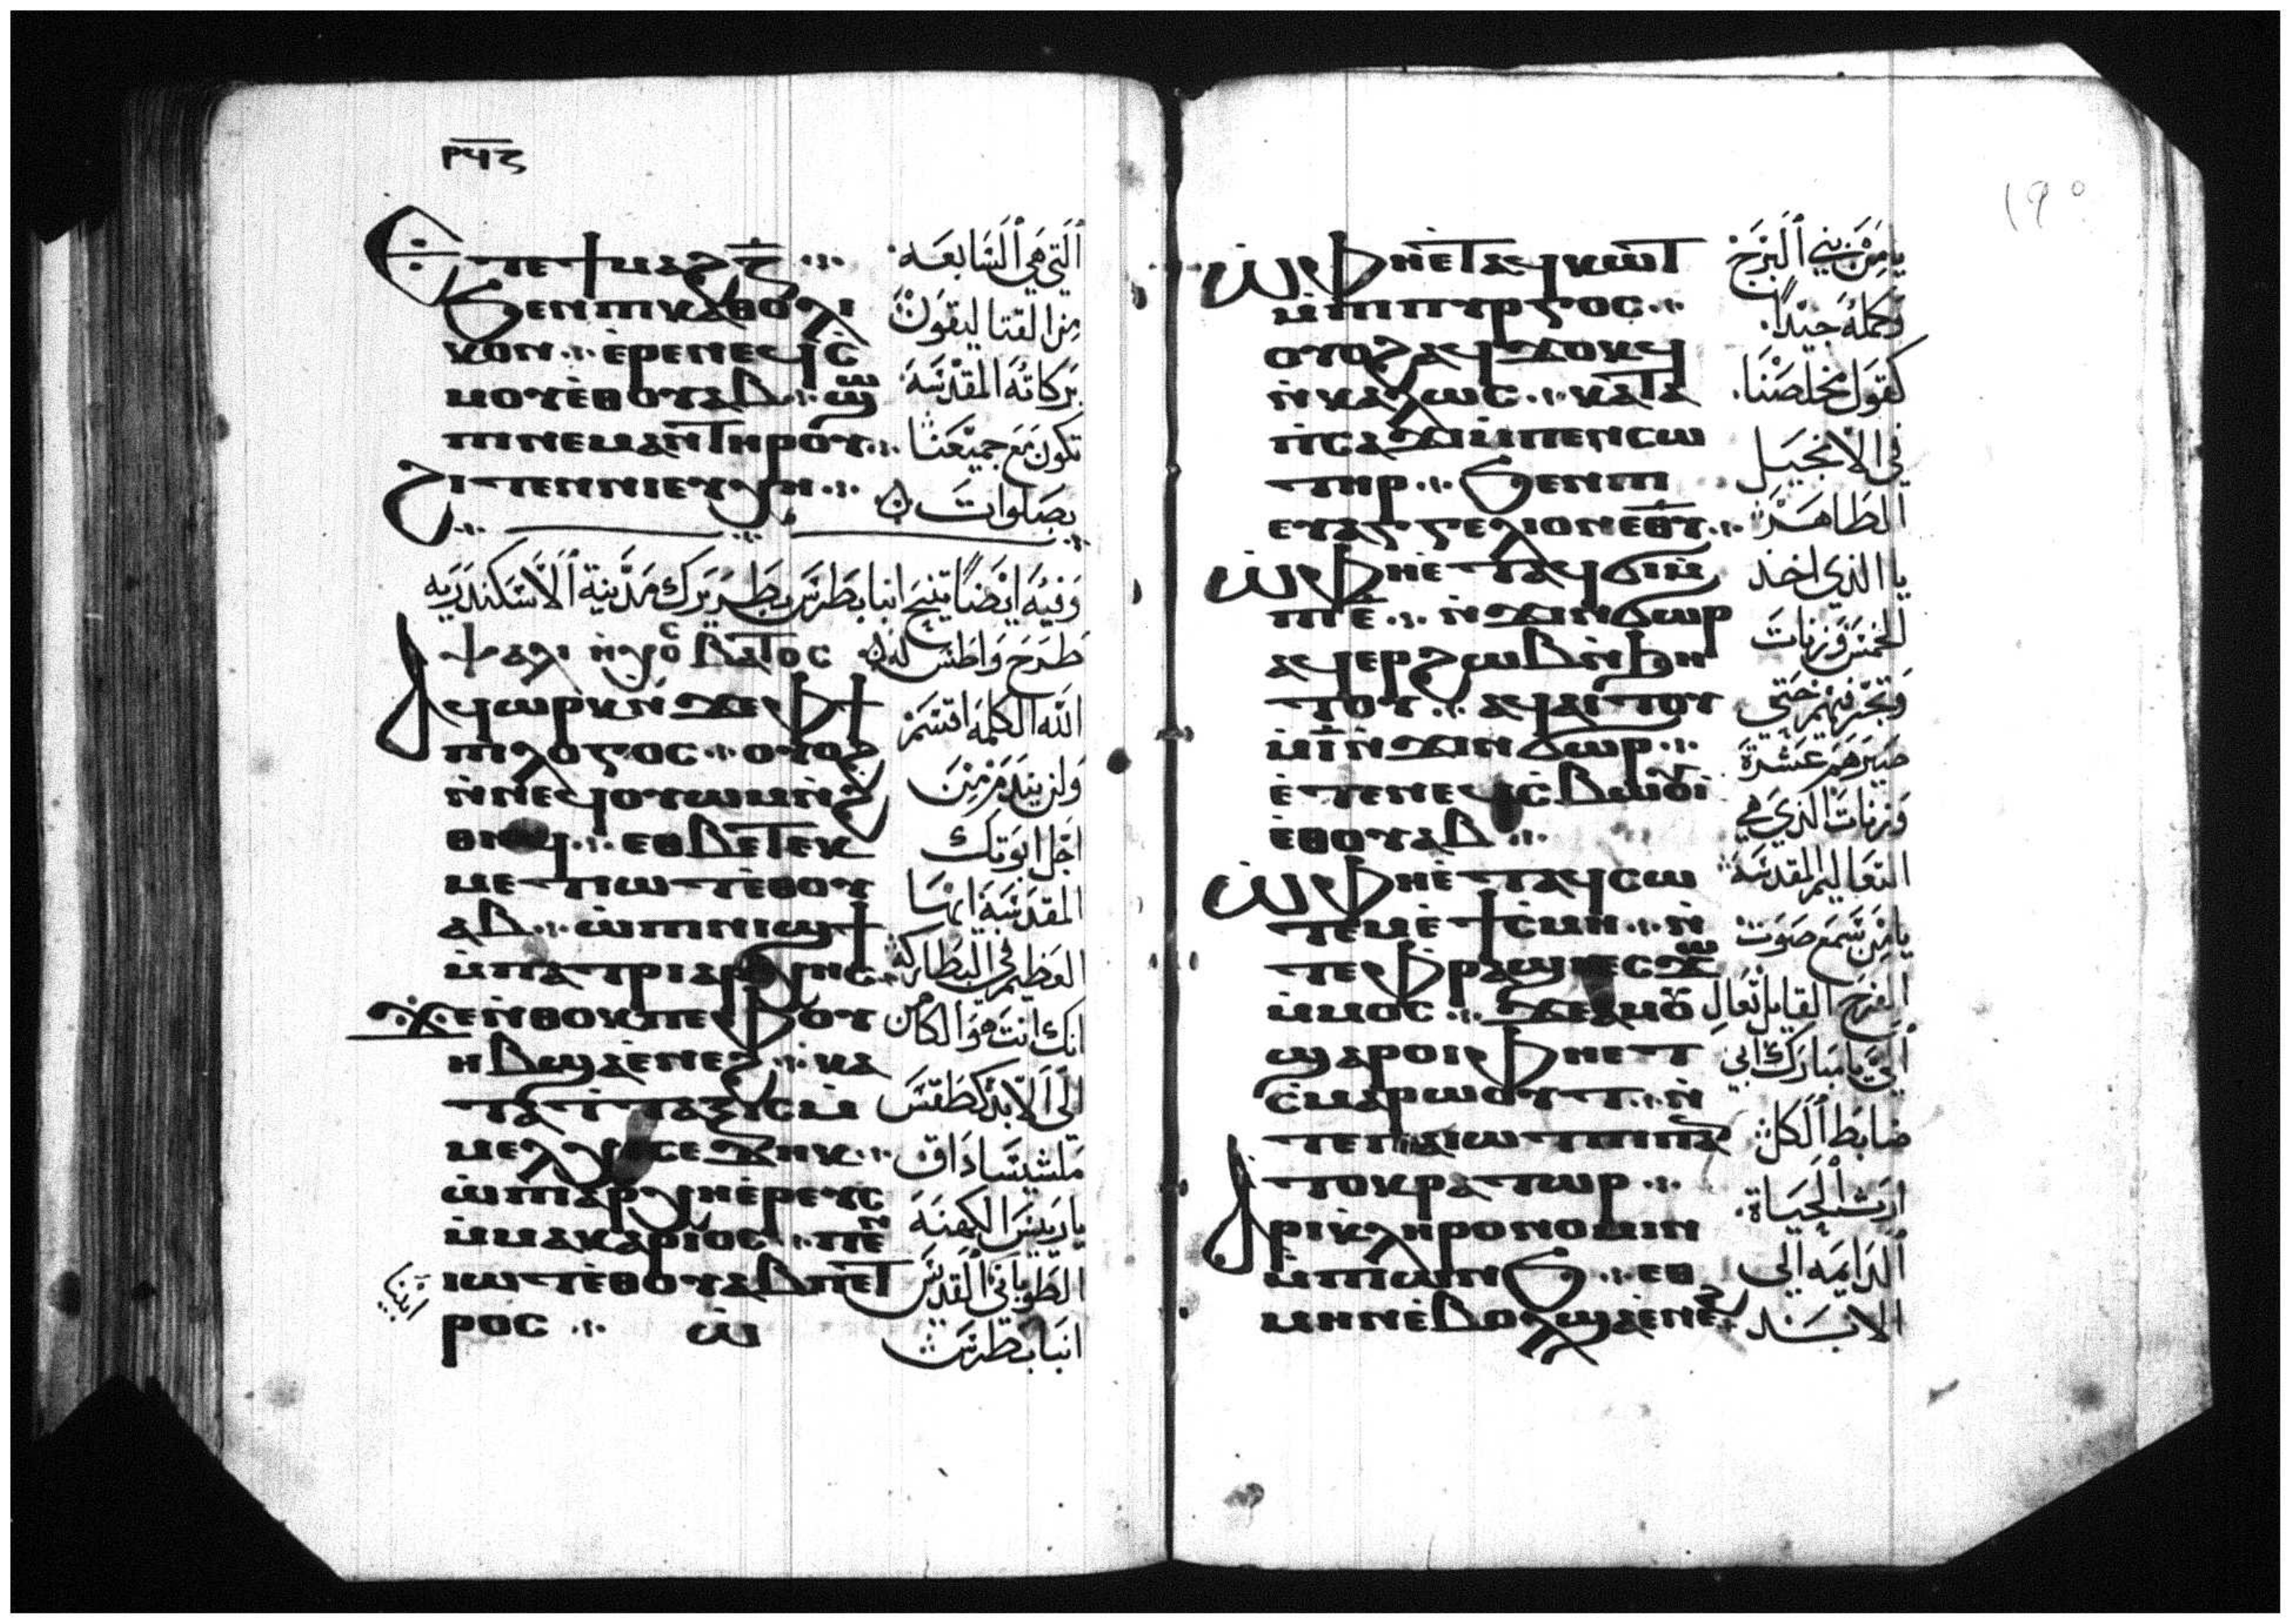 ⲣϥⲍ
Ⲉⲧⲉϯⲙⲁϩⲍ̅
ϧⲉⲛⲡⲓⲕⲁⲑⲟⲗⲓ
ⲕⲟⲛ ⲉ̀ⲣⲉⲛⲉϥⲥ̀
ⲙⲟⲩⲉ̀ⲑⲟⲩⲁⲃ ϣⲱ
ⲡⲓⲛⲉⲙⲁⲛⲧⲏⲣⲟⲩ
ϩⲓⲧⲉⲛⲛⲓⲉⲩⲭⲏ
التي هي السابعه
من القتاليقون
بركاته المقدسه
تكون مع جميعنا
بصلوات
وفيه ايضا تنيح انبا بطرس بطريرك مدينة الاسكندريه
ⲯⲁⲗⲓ ⲃⲁⲧⲟⲥ طرح واطس له
Ⲁϥⲱⲣⲕⲛ̀ϫⲉⲫϯ
ⲡⲓⲗⲟⲅⲟⲥ ⲟⲩⲟϩ
ⲛ̀ⲛⲉϥⲟⲩⲱⲙⲛ̀ϩ
ⲑⲏϥ ⲉⲑⲃⲉⲧⲉⲕ
ⲙⲉⲧⲓⲱⲧⲉ̀ⲑⲟⲩ
ⲁⲃ ⲱ̀ⲡⲓⲛⲓϣϯ
ⲙ̀ⲡⲁⲧⲣⲓⲁⲣⲭⲏⲥ
ϫⲉⲛ̀ⲑⲟⲕⲡⲉⲫⲟⲩ
ⲏⲃϣⲁⲉ̀ⲛⲉϩ ⲕⲁ
ⲧⲁⲧ̀ⲧⲁⲝⲓⲥⲙ̀
ⲙⲉⲗⲭⲓⲥⲉⲇⲉⲕ
ⲱ̀ⲡⲓⲁⲣⲭⲏⲉ̀ⲣⲉⲩⲥ
ⲙ̀ⲙⲁⲕⲁⲣⲓⲟⲥ ⲡⲉⲛ
ⲓⲱⲧⲉ̀ⲑⲟⲩⲁⲃⲡⲉⲧ
ⲣⲟⲥ ⲱ̀
الله الكلمه اقسم
ولن يندم من
اجل ابوتك
المقدسه ايها
العظيم في البطاركه
انك انت هو الكاهن
الى الابد كطقس
ملشيساداق
يا رييس الكهنه
الطوباني القديس
انبا بطرس
١٩٥
ⲱ̀ⲫⲏⲉ̀ⲧⲁϥⲕⲱ̀ⲧ
ⲙ̀ⲡⲓⲡⲩⲣⲅⲟⲥ
ⲟⲩⲟϩⲁϥϫⲟⲕϥ
ⲛ̀ⲕⲁⲗⲱⲥ ⲕⲁⲧⲁ
ⲡ̀ⲥⲁϫⲓⲙ̀ⲡⲉⲛⲥⲱ
ⲧⲏⲣ ϧⲉⲛⲡⲓ
ⲉⲩⲁⲅⲅⲉⲗⲓⲟⲛⲉ̅ⲑ̅ⲩ̅
ⲱ̀ⲫⲏⲉ̀ⲧⲁϥϭⲓⲙ̀
ⲡⲓⲉ̅ ⲛ̀ϫⲓⲛϭⲱⲣ
ⲁϥⲉⲣϩⲱⲃⲛ̀ϧⲏ
ⲧⲟⲩ ⲁϥⲁⲓⲧⲟⲩ
ⲙ̀ⲓ̅ⲛ̀ϫⲓⲛϭⲱⲣ
ⲉ̀ⲧⲉⲛⲉϥⲥ̀ⲃⲱⲟⲩⲓ̀
ⲉ̀ⲑⲟⲩⲁⲃ
ⲱ̀ⲫⲏⲉ̀ⲧⲁϥⲥⲱ
ⲧⲉⲙⲉ̀ϯⲥ̀ⲙⲏ ⲛ̀
ⲧⲉⲫ̀ⲣⲁϣⲓⲉⲥϫⲱ
ⲙ̀ⲙⲟⲥ ϫⲉⲁⲙⲟⲩ
ϣⲁⲣⲟⲓⲫⲏⲉⲧ
ⲥ̀ⲙⲁⲣⲱⲟⲩⲧ ⲛ̀
ⲧⲉⲡⲁⲓⲱⲧⲡⲓⲡⲁⲛ
ⲧⲟⲕⲣⲁⲧⲱⲣ
Ⲁⲣⲓⲕⲗⲏⲣⲟⲛⲟⲙⲓⲛ
ⲙ̀ⲡⲓⲱⲛϧ ⲉⲑ
ⲙⲏⲛⲉ̀ⲃⲟⲗϣⲁⲉ̀ⲛⲉϩ
يا من بني البرج
وكمله جيدا
كقول مخلصنا
في الانجيل
الطاهر
يا الذي اخذ
الخمس وزنات
وتجر فيهم حتي
صيرهم عشرة
وزنات الذي هي
التعاليم المقدسه
يا من سمع صوت
الفرح القايل تعال
الي يا مبارك ابي
ضابط الكل
ارث الحياة
الدايمه الى
الابد